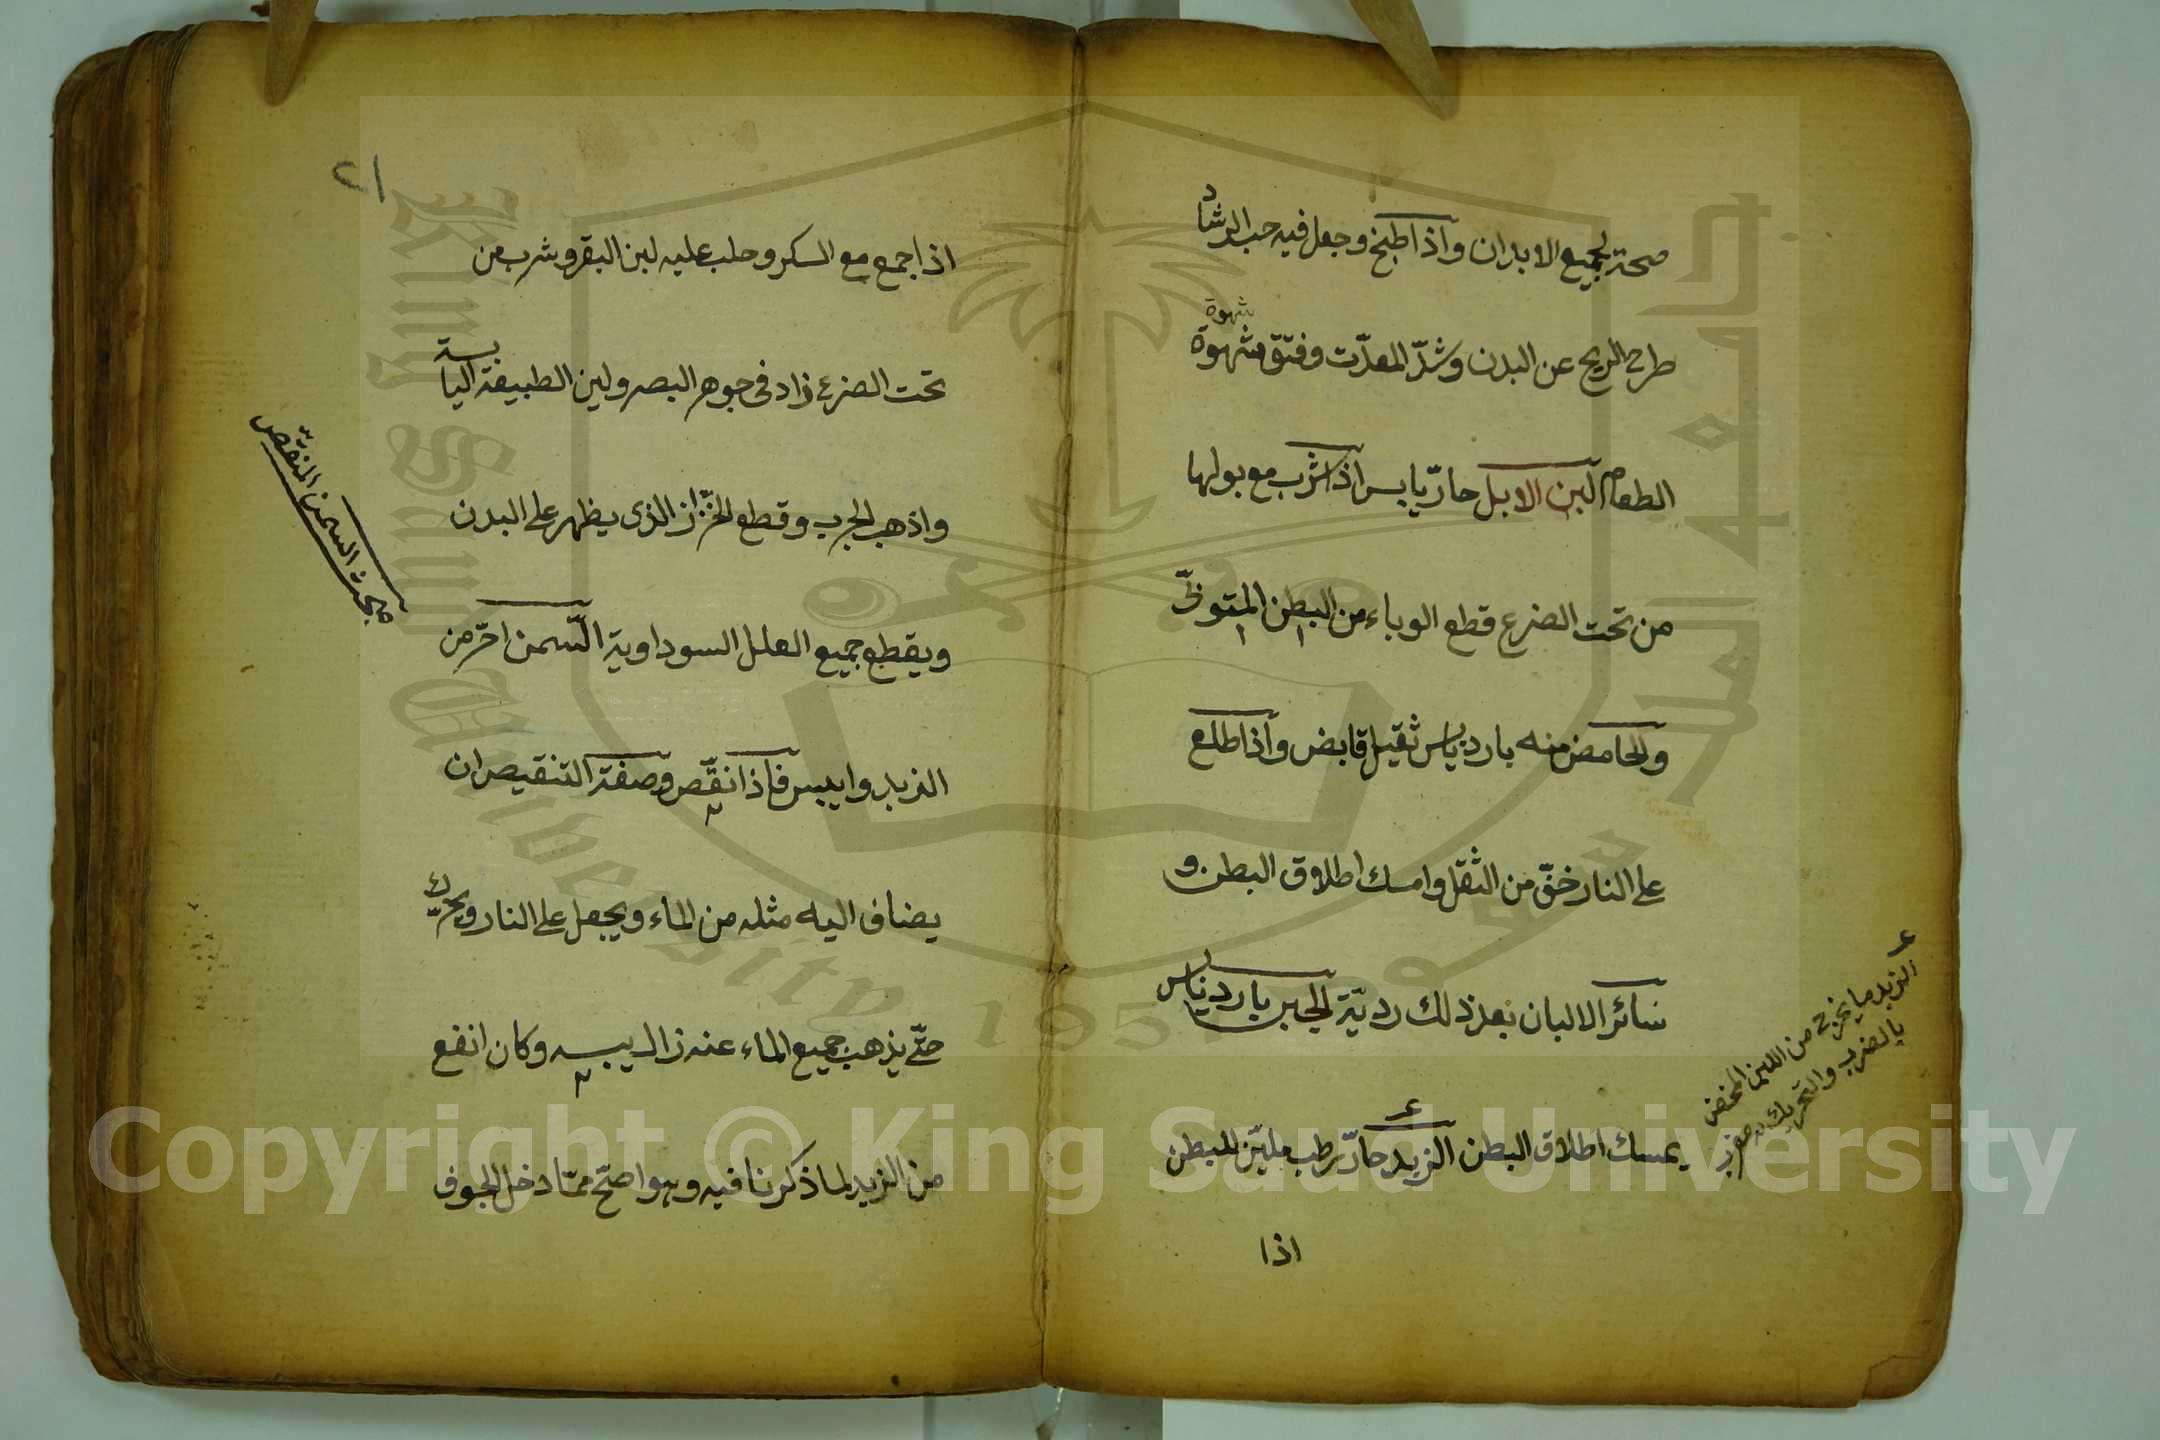 صحة لجميع الابدان واذا طبخ وجعل فيه حب الرشاد
طرح الريح عن البدن وشدّ المعدّت وفتق شهوة
شهوة
الطعام لبن الابل حارّ يابس اذا شرب مع بولها
من تحت الضرع قطع الوباء من البطن
والحامض منه بارد يابس ثقيل قابض واذا طلع
على النار خفّ من الثقل وامسك اطلاق البطن و
سائر الالبان بعد ذلك رديّة الجبن بارد يابس
يمسك اطلاق البطن الزبد حارّ رطب مليّن للبطن
اذا
الزبد ما يخرج من اللبن المخض
بالضرب والتحريك
٢١
اذا جمع مع السكر وحلب عليه لبن البقر وشرب من
تحت الضرع زاد في جوهر البصر ولين الطبيعة اليابسة
واذهب الجرب وقطع الحزّاز الذي يظهر على البدن
ويقطع جميع العلل السوداوية السّمن احرّ من
الزبد وايبس فاذا نقّص وصفة التنقيص ان
يضاف اليه مثله من الماء ويجعل على النار ويحرك
حتّى يذهب جميع الماء عنه زال يبسه وكان انفع
من الزبد لما ذكرنا فيه وهو اصحّ ممّا دخل الجوف
مبحث السمن المنقّص
Copyright © King Saud University
King Saud University
1957
جامعة الملك سعود